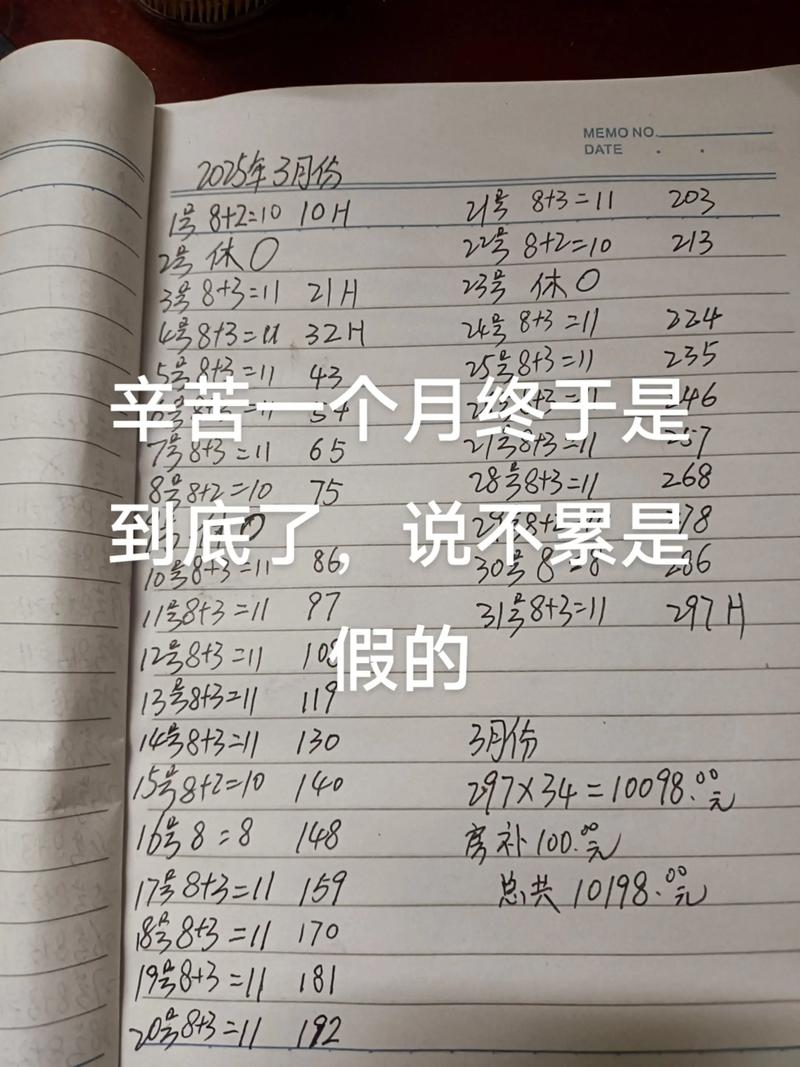 MEMO NO.
DATE . .
2025年3月份
1号 8+2=10 10H
2号 休0
3号 8+3=11 21H
4号 8+3=11 32H
5号 8+3=11 43
8+3=11 54
7号 8+3=11 65
8号 8+2=10 75
0
10号 8+3=11 86
11号 8+3=11 97
12号 8+3=11 108
13号 8+3=11 119
14号 8+3=11 130
15号 8+2=10 140
16号 8=8 148
17号 8+3=11 159
18号 8+3=11 170
19号 8+3=11 181
20号 8+3=11 192
21号 8+3=11 203
22号 8+2=10 213
23号 休0
24号 8+3=11 224
25号 8+3=11 235
8+3=11 246
27号 8+3=11 257
28号 8+3=11 268
278
30号 8=8 286
31号 8+3=11 297H
3月份
297×34=10098.00元
房补100.00元
总共10198.00元
辛苦一个月终于是
到底了，说不累是
假的